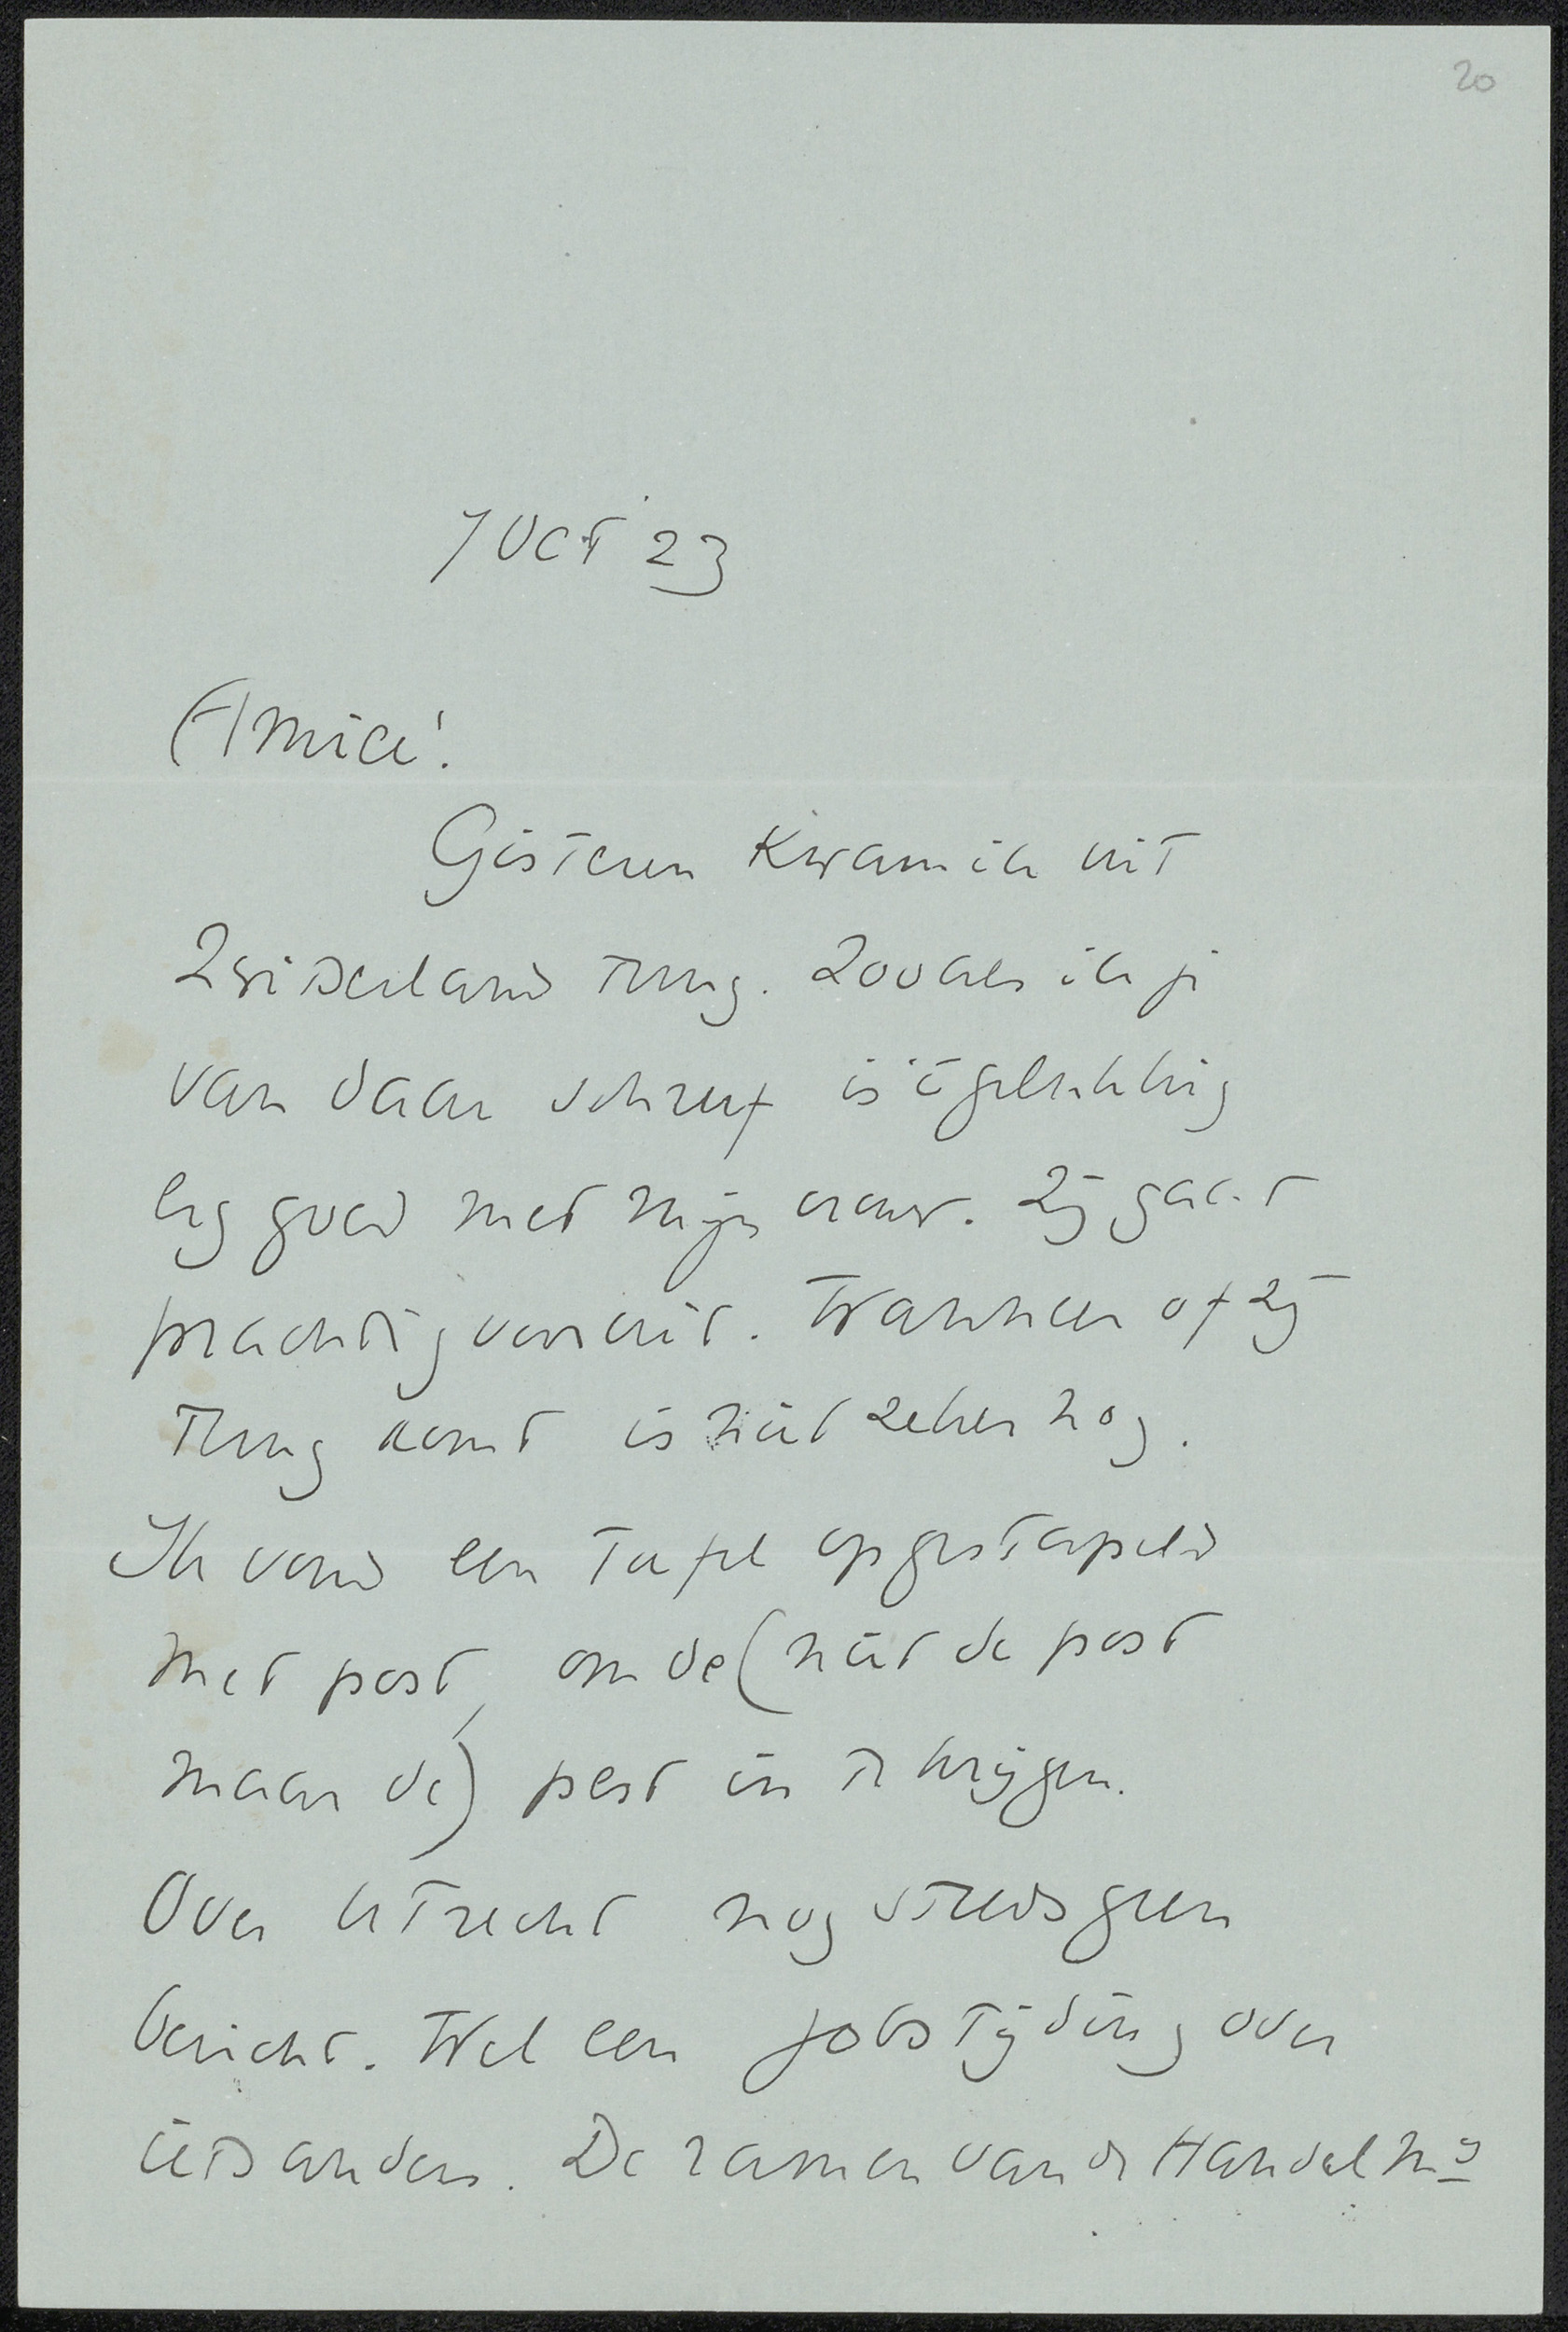 20
7 Oct 23
Amice!
Gisteren kwam ik uit
Zwitserland terug. Zooals ik je
van daar schreef is 't gelukkig
erg goed met mijn vrouw. Zij gaat
prachtig vooruit. Wanneer of zij
terug komt is niet zeker nog.
Ik vond een tafel opgestapeld
met post, om de (niet de post
maar de) pest in te krijgen.
Over Utrecht nog steeds geen
bericht. Wel een jobstijding over
iets anders. De ramen van de Handel Mij